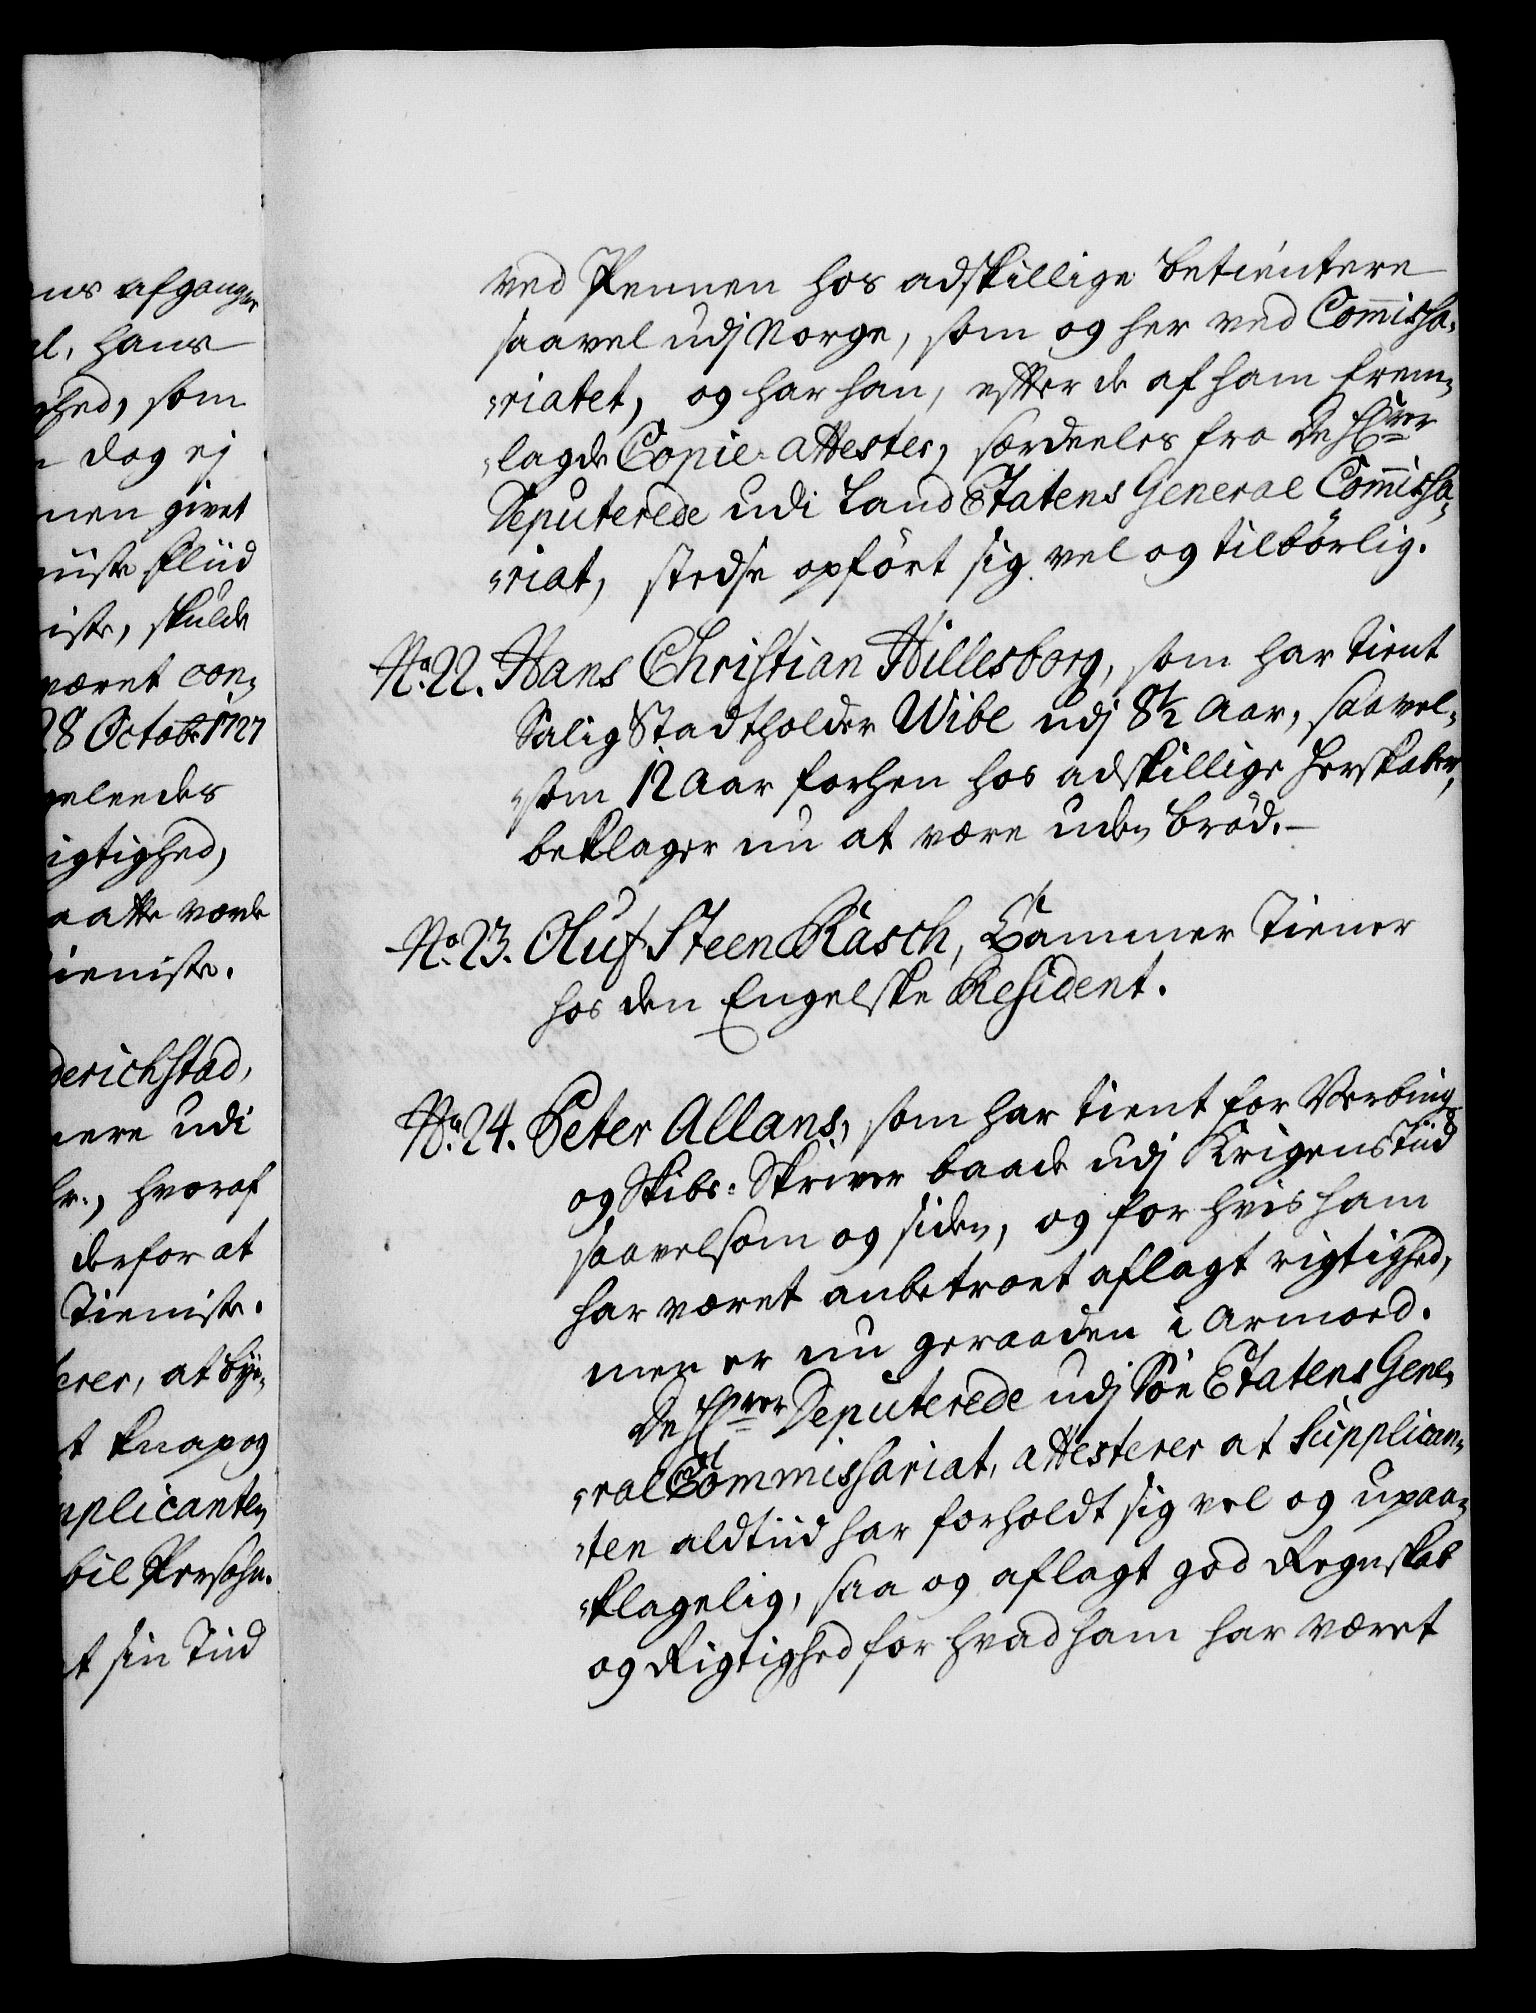 ns afganger
l, hans
hed, som
dog ej
nen givet
iiste fliid
iste, skulde
været con„
28 Octobr 1727
geleedes
igtighed,
aatte værde
ieniste.
derichstad,
nere udi
hr., hvoraf
derfor at
Tieniste.
erer, at
t knap og
pplicanten
bil Persohn.
t sin Tiid
ved Pennen hos adskillige betientere
saavel udj Norge, som og her ved Com̄issa„
„riatet, og har han, efter de af ham frem„
„lagde Copie: attester, særdeeles fra De Hrer
Deputerede udi Land Etatens General Com̄issa„
„riat, stedse opført sig vel og tilbørlig.
No. 22. Hans Christian Hillesborg, som har tient
Salig Stadtholder Wibe udj 8½ Aar, saavel„
„som 12 Aar forhen hos adskillige Herskaber,
beklager nu at være uden brød.–
No. 23. Oluf Steen Rasch, Cammer Tiener
hos den Engelske Resident.
No. 24. Peter Allans, som har tient for
og Skibs: Skriver baade udj Krigens Tiid
saavelsom og siden, og for hvis ham
har været anbetroet aflagt rigtighed,
men er nu geraaden i Armoed.
De Hrer Deputerede udj Søe Etatens Gene„
„ral Commissariat, attesterer at Supplican„
„ten aldtiid har forholdt sig vel og upaa„
„klagelig, saa og aflagt god Regnskab
og Rigtighed for hvad ham har været